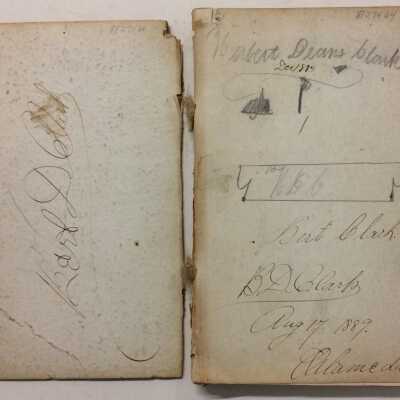 Bert D Clark
Herbert Deans Clark
H D C
Bert Clark
B. D. Clark
Aug 17, 1889.
Alameda